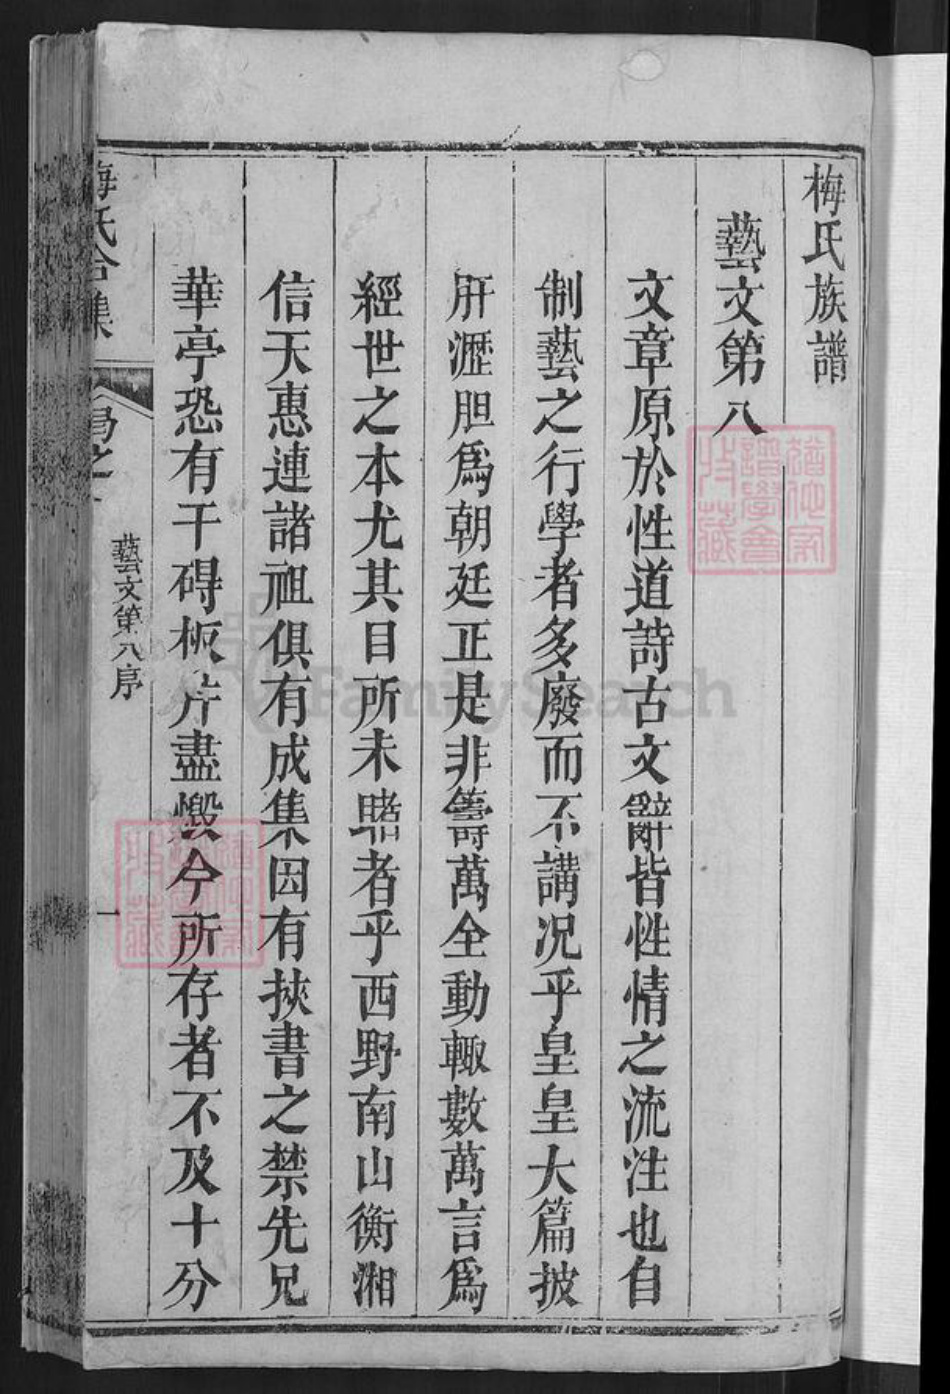 梅氏族譜
藝文第八
文章原於性道詩古文辭皆性情之流注也自
制藝之行學者多廢而不講况乎皇皇大篇披
肝瀝胆爲朝廷正是非籌萬全動輙數萬言爲
經世之本尤其目所未睹者乎西野南山衡湘
信天惠連諸祖俱有成集因有挾書之禁先兄
華亭恐有干碍板片盡燬今所存者不及十分
藝文第八序
一
梅氏合集
FamilySearch